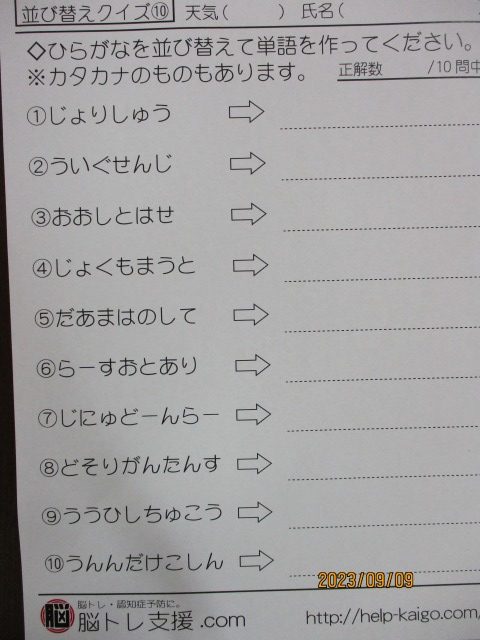 並び替えクイズ⑩ 天気( ) 氏名(
◇ひらがなを並び替えて単語を作ってください。
※カタカナのものもあります。 正解数 /10問中
①じょりしゅう
②ういぐせんじ
③おおしとはせ
④じょくもまうと
⑤だあまはのして
⑥らーすおとあり
⑦じにゅどーんらー
⑧どそりがんたんす
⑨ううひしちゅこう
⑩うんんだけこしん
2023/09/09
脳
脳トレ・認知症予防に。
脳トレ支援.com http://help-kaigo.com/